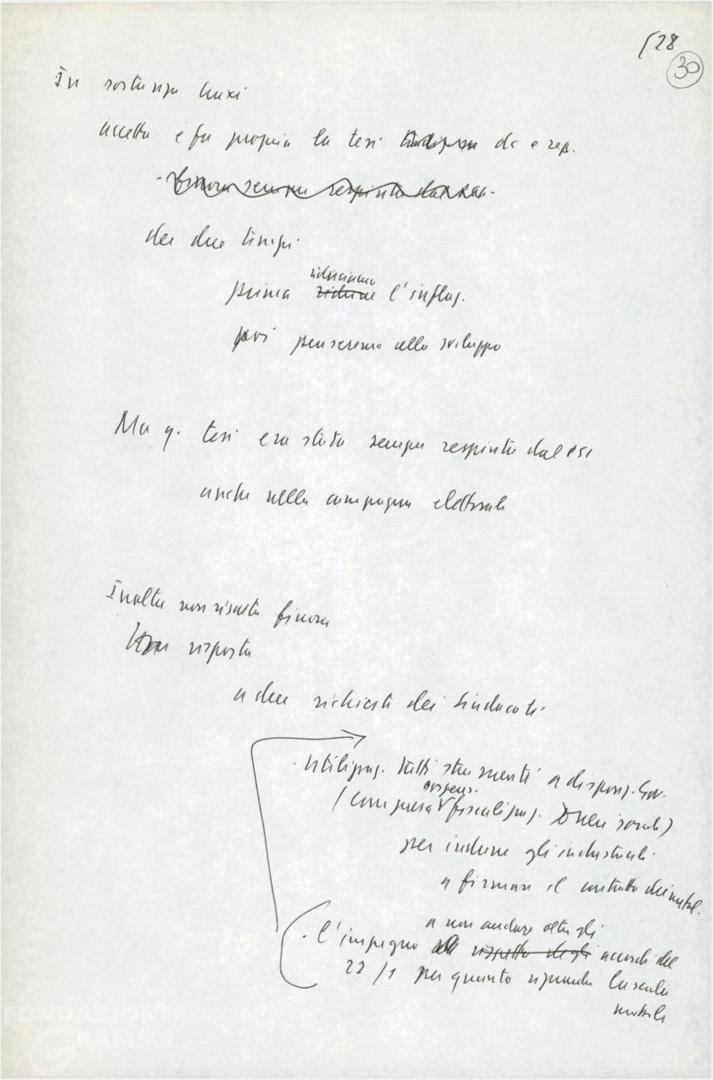 528
30
In sostanza Craxi
accetta e fa propria la tesi dc e rep.
finora sempre respinta dal PSI.
dei due tempi.
riduciamo
prima ridurre l'inflaz.
poi penseremo allo sviluppo
Ma q. tesi era stata sempre respinta dal PSI
anche nella campagna elettorale
Inoltre non risulta finora
risposta
a due richieste dei sindacati.
. Utilizzaz. tutti strumenti a disposiz. Gov.
sospens.
(compresa fiscalizzaz. oneri sociali)
per indurre gli industriali
a firmare il contratto dei metal.
a non andare oltre gli
. l'impegno rispetto degli accordi del
22/1 per quanto riguarda la scala
mobile
FONDAZIONE
GRAMSCI